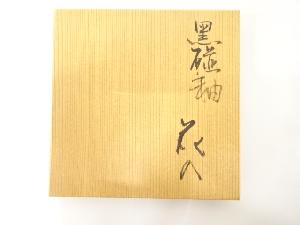 黒碰釉
花入